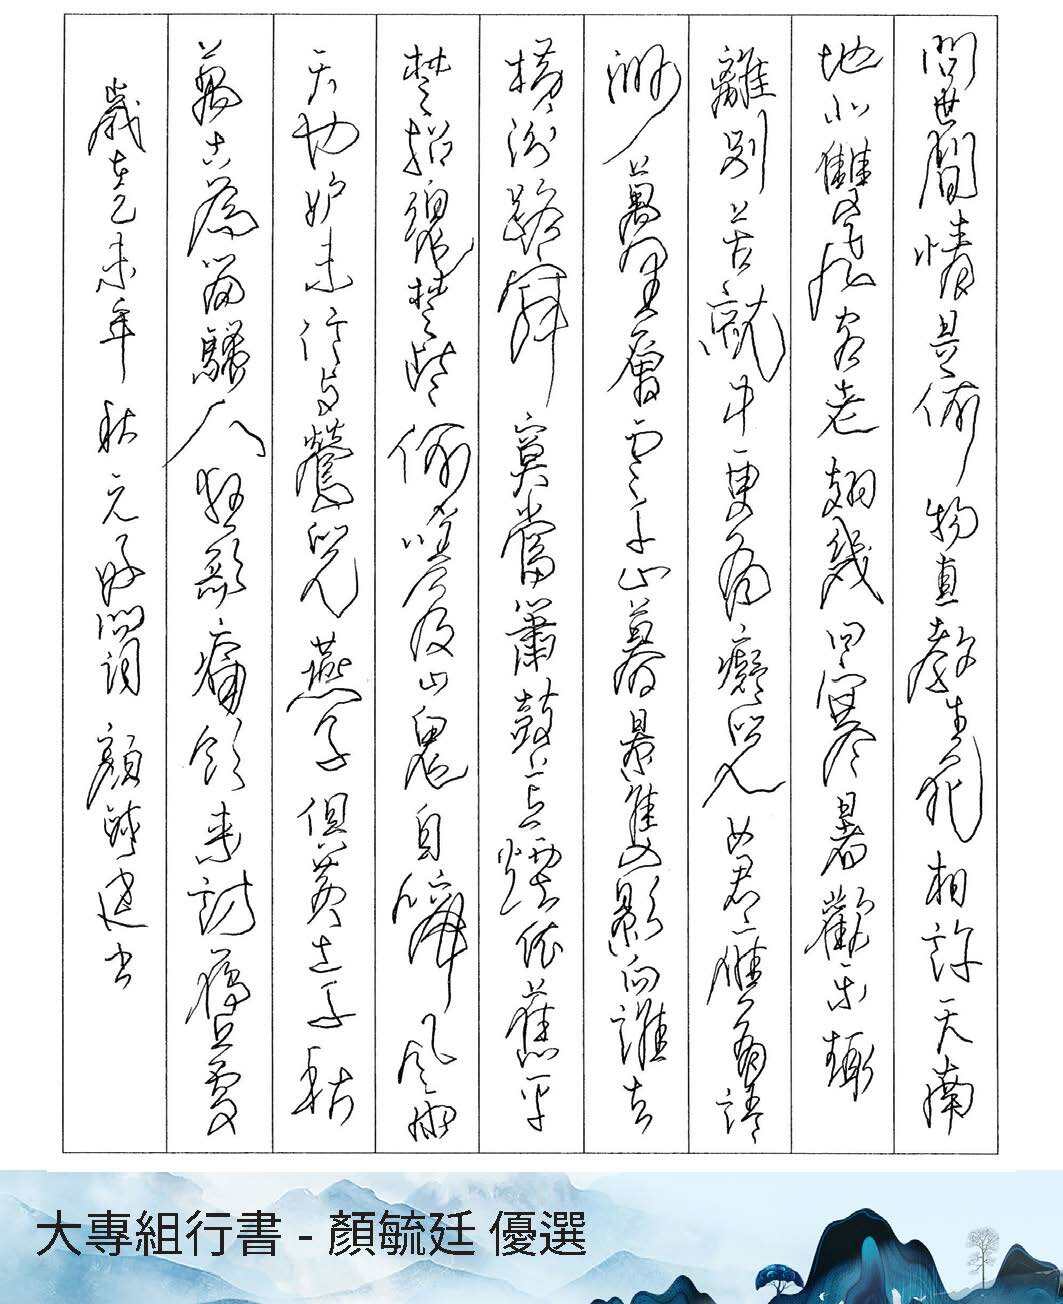 問世間情是何物直教生死相許天南
地北雙飛客老翅幾回寒暑歡樂趣
離別苦就中更有癡兒女君應有語
渺萬里層雲千山暮景隻影向誰去
橫汾路寂寞當簫鼓荒煙依舊平
楚招魂楚些何嗟及山鬼自啼風雨
天也妒未信與鶯兒燕子俱黃土千秋
萬古為留騷人狂歌痛飲來訪雁丘處
歲在乙未年秋元好問詞顏毓廷書
大專組行書 - 顏毓廷 優選